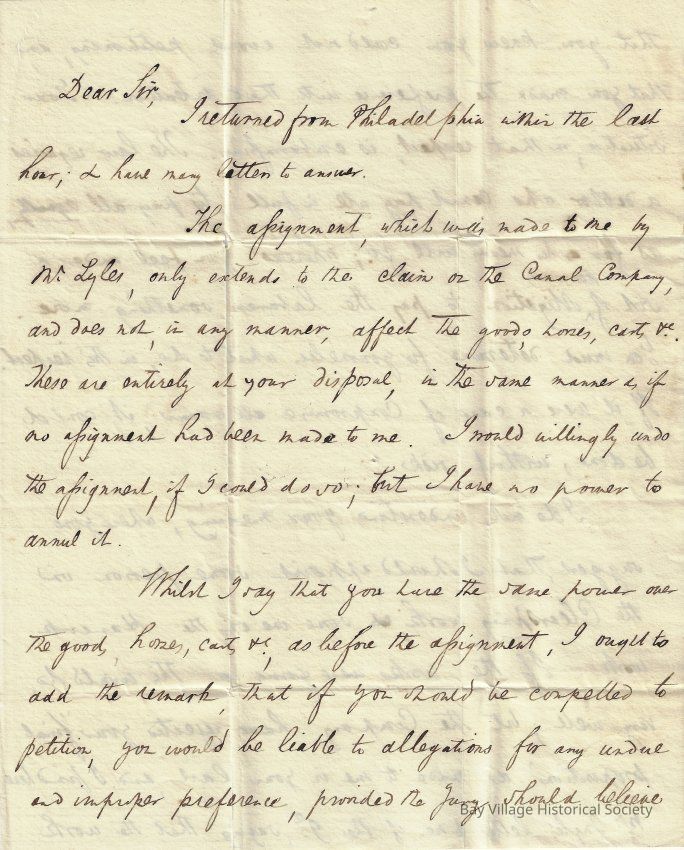 Dear Sir,
I returned from Philadelphia within the last
hour; & have many letters to answer.
The assignment, which was made to me by
Mr. Lyles, only extends to the claim on the Canal Company,
and does not, in any manner, affect the goods, horses, carts, &c.
These are entirely at your disposal, in the same manner as if
no assignment had been made to me. I would willingly undo
the assignment, if I could do so; but I have no power to
annul it.
Whilst I say that you have the same power over
the goods, horses, cart, &c, as before the assignment, I ought to
add the remark, that if you should be compelled to
petition, you would be liable to allegations for any undue
and improper preference, provided the Jury should believe
Bay Village Historical Society